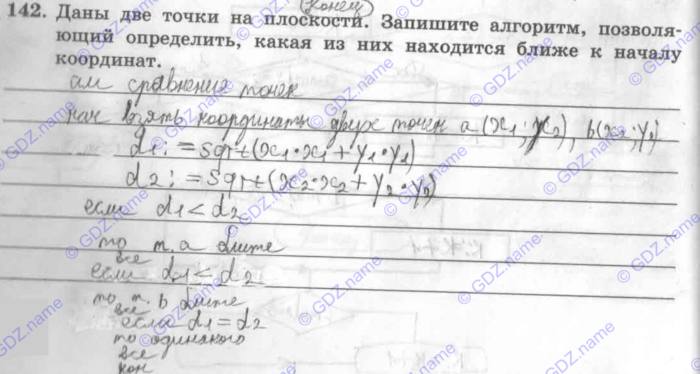 (конец)
142. Даны две точки на плоскости. Запишите алгоритм, позволя-
ющий определить, какая из них находится ближе к началу
координат.
алг сравнение точек
нач взять координаты двух точек a(x1; y2), b(x2; y1)
d1: = sqrt(x1·x1 + y1·y1)
d2: = sqrt(x2·x2 + y2·y2)
если d1 < d2
то т. а ближе
все
если d1 < d2
то т. b ближе
все
если d1 = d2
то одинаково
все
кон
© GDZ.name